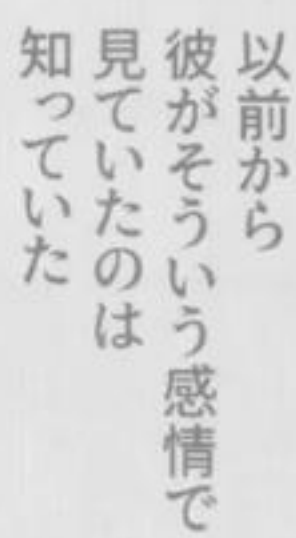 以前から
彼がそういう感情で
見ていたのは
知っていた